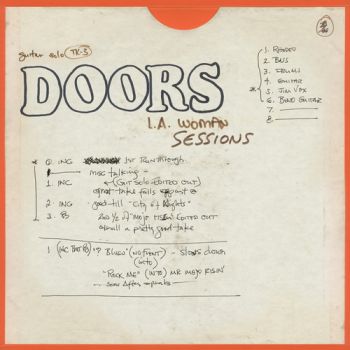 guitar solo TK-3
DOORS
L.A. WOMAN
SESSIONS
1. RHODES
2. BASS
3. DRUMS
4. GUITAR
5. JIM VOX
6. BAND GUITAR
7.
8.
0. INC 1st Run Through
misc talking
1. INC (GUIT SOLO EDITED OUT)
great take falls apart @
2. INC - good till "City of Nights"
3. 2nd 1/2 of "MOJO RISIN" EDITED OUT
overall a pretty good take
1 "? BLUES" (NO FRONT) - Slows down
(into)
"ROCK ME" (INTO) MR MOJO RISIN'